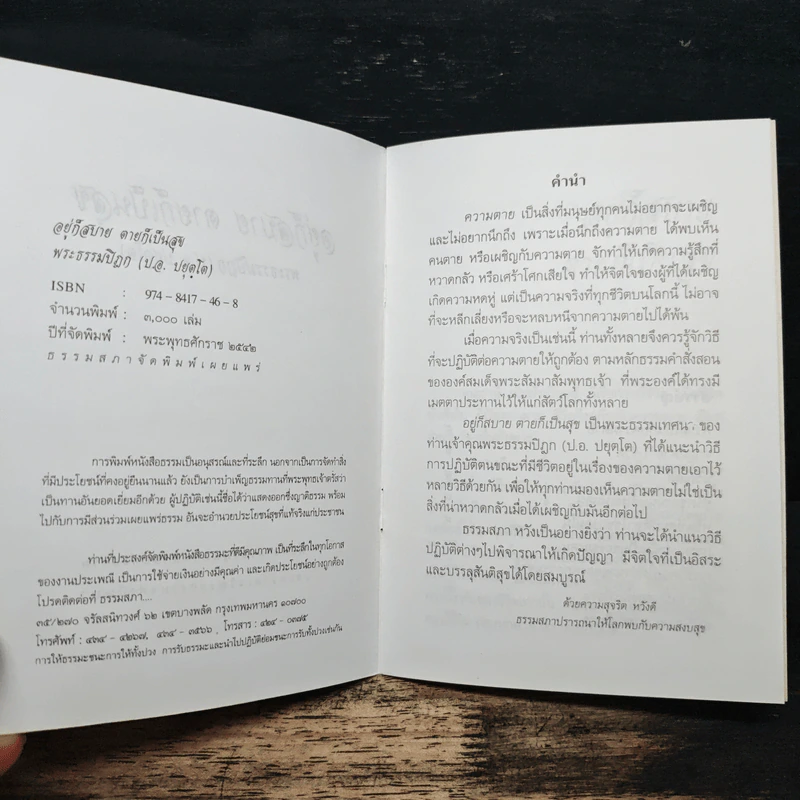 อยู่ก็สบาย ตายก็เป็นสุข
พระธรรมปิฎก (ป.อ. ปยุตฺโต)
ISBN : 974-8417-46-8
จำนวนพิมพ์ : ๓,๐๐๐ เล่ม
ปีที่จัดพิมพ์ : พระพุทธศักราช ๒๕๔๒
ธรรมสภาจัดพิมพ์เผยแพร่
การพิมพ์หนังสือธรรมเป็นอนุสรณ์และที่ระลึก นอกจากเป็นการจัดทำสิ่ง
ที่มีประโยชน์ที่คงอยู่ยืนนานแล้ว ยังเป็นการบำเพ็ญธรรมทานที่พระพุทธเจ้าตรัสว่า
เป็นทานอันยอดเยี่ยมอีกด้วย ผู้ปฏิบัติเช่นนี้ชื่อได้ว่าแสดงออกซึ่งญาติธรรม พร้อม
ไปกับการมีส่วนร่วมเผยแพร่ธรรม อันจะอำนวยประโยชน์สุขที่แท้จริงแก่ประชาชน
ท่านที่ประสงค์จัดพิมพ์หนังสือธรรมะที่ดีมีคุณภาพ เป็นที่ระลึกในทุกโอกาส
ของงานประเพณี เป็นการใช้จ่ายเงินอย่างมีคุณค่า และเกิดประโยชน์อย่างถูกต้อง
โปรดติดต่อที่ ธรรมสภา....
๓๕/๒๗๐ จรัลสนิทวงศ์ ๖๒ เขตบางพลัด กรุงเทพมหานคร ๑๐๗๐๐
โทรศัพท์ : ๔๓๔ - ๔๒๖๗, ๔๓๔ - ๓๕๖๖ , โทรสาร : ๔๒๔ - ๐๓๗๕
การให้ธรรมะชนะการให้ทั้งปวง การรับธรรมะและนำไปปฏิบัติย่อมชนะการรับทั้งปวงเช่นกัน
คำนำ
ความตาย เป็นสิ่งที่มนุษย์ทุกคนไม่อยากจะเผชิญ
และไม่อยากนึกถึง เพราะเมื่อนึกถึงความตาย ได้พบเห็น
คนตาย หรือเผชิญกับความตาย จักทำให้เกิดความรู้สึกที่
หวาดกลัว หรือเศร้าโศกเสียใจ ทำให้จิตใจของผู้ที่ได้เผชิญ
เกิดความหดหู่ แต่เป็นความจริงที่ทุกชีวิตบนโลกนี้ ไม่อาจ
ที่จะหลีกเลี่ยงหรือจะหลบหนีจากความตายไปได้พ้น
เมื่อความจริงเป็นเช่นนี้ ท่านทั้งหลายจึงควรรู้จักวิธี
ที่จะปฏิบัติต่อความตายให้ถูกต้อง ตามหลักธรรมคำสั่งสอน
ขององค์สมเด็จพระสัมมาสัมพุทธเจ้า ที่พระองค์ได้ทรงมี
เมตตาประทานไว้ให้แก่สัตว์โลกทั้งหลาย
อยู่ก็สบาย ตายก็เป็นสุข เป็นพระธรรมเทศนา ของ
ท่านเจ้าคุณพระธรรมปิฎก (ป.อ. ปยุตฺโต) ที่ได้แนะนำวิธี
การปฏิบัติตนขณะที่มีชีวิตอยู่ในเรื่องของความตายเอาไว้
หลายวิธีด้วยกัน เพื่อให้ทุกท่านมองเห็นความตายไม่ใช่เป็น
สิ่งที่น่าหวาดกลัวเมื่อได้เผชิญกับมันอีกต่อไป
ธรรมสภา หวังเป็นอย่างยิ่งว่า ท่านจะได้นำแนววิธี
ปฏิบัติต่างๆไปพิจารณาให้เกิดปัญญา มีจิตใจที่เป็นอิสระ
และบรรลุสันติสุขได้โดยสมบูรณ์
ด้วยความสุจริต หวังดี
ธรรมสภาปรารถนาให้โลกพบกับความสงบสุข